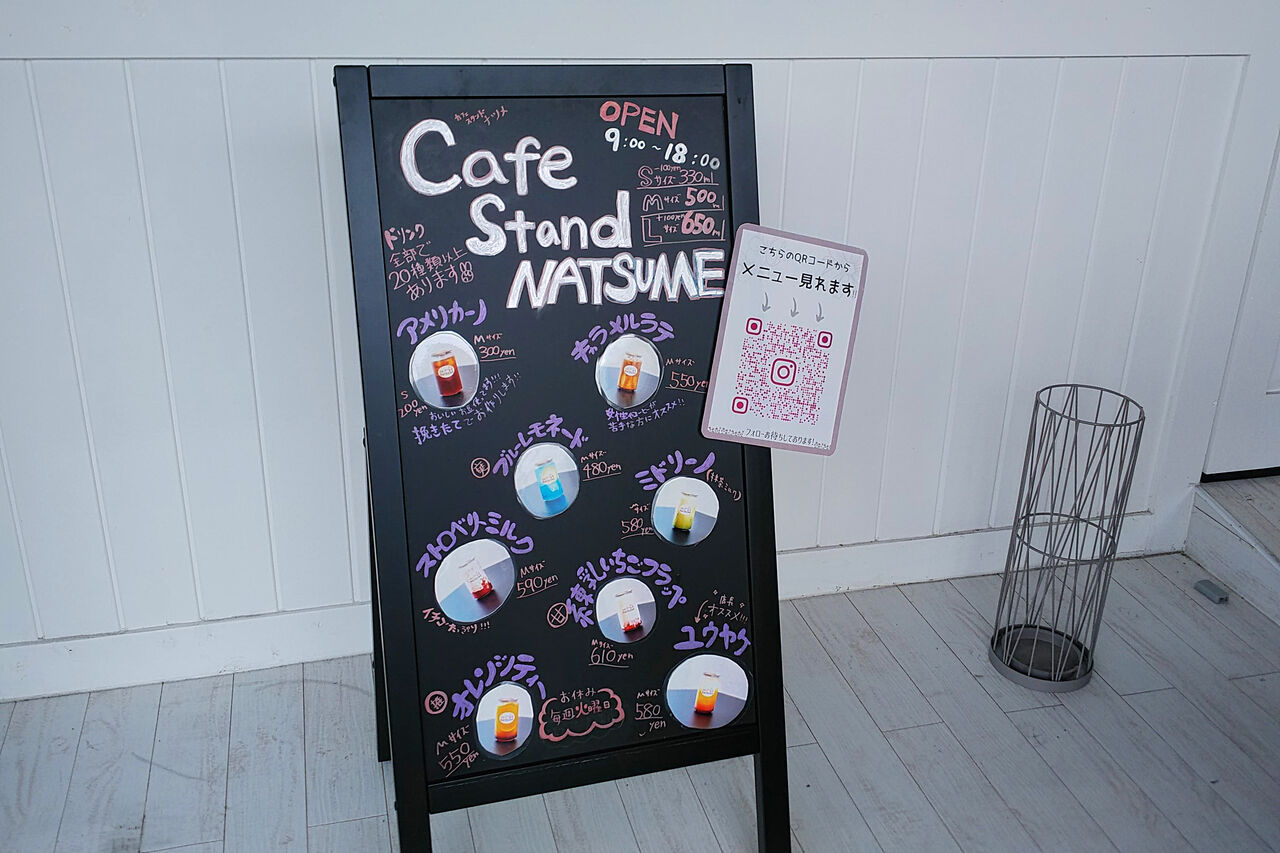 Cafe
Stand
NATSUME
カフェ
スタンド
ナツメ
OPEN
9:00~18:00
-100yen
Sサイズ 330ml
Mサイズ 500ml
+100yen
Lサイズ 650ml
ドリンク
全部で
20種類以上
あります
こちらのQRコードから
メニュー見れます!!
フォローお待ちしております!
アメリカーノ
Mサイズ
300yen
S
200yen
おいしいお豆使ってます!!!
挽きたてでお作りします!!
キャラメルラテ
Mサイズ
550yen
女性やコーヒー
苦手な方にオススメ!!
ブルーレモネード
Mサイズ
480yen
ミドリーノ
(抹茶ミルク)
サイズ
580yen
ストロベリーミルク
Mサイズ
590yen
イチゴたっぷり!!!
練乳いちごフラップ
Mサイズ
610yen
店長
オススメ!!!
ユウヤケ
Mサイズ
580
yen
オレンジティー
Mサイズ
550yen
お休み
毎週火曜日